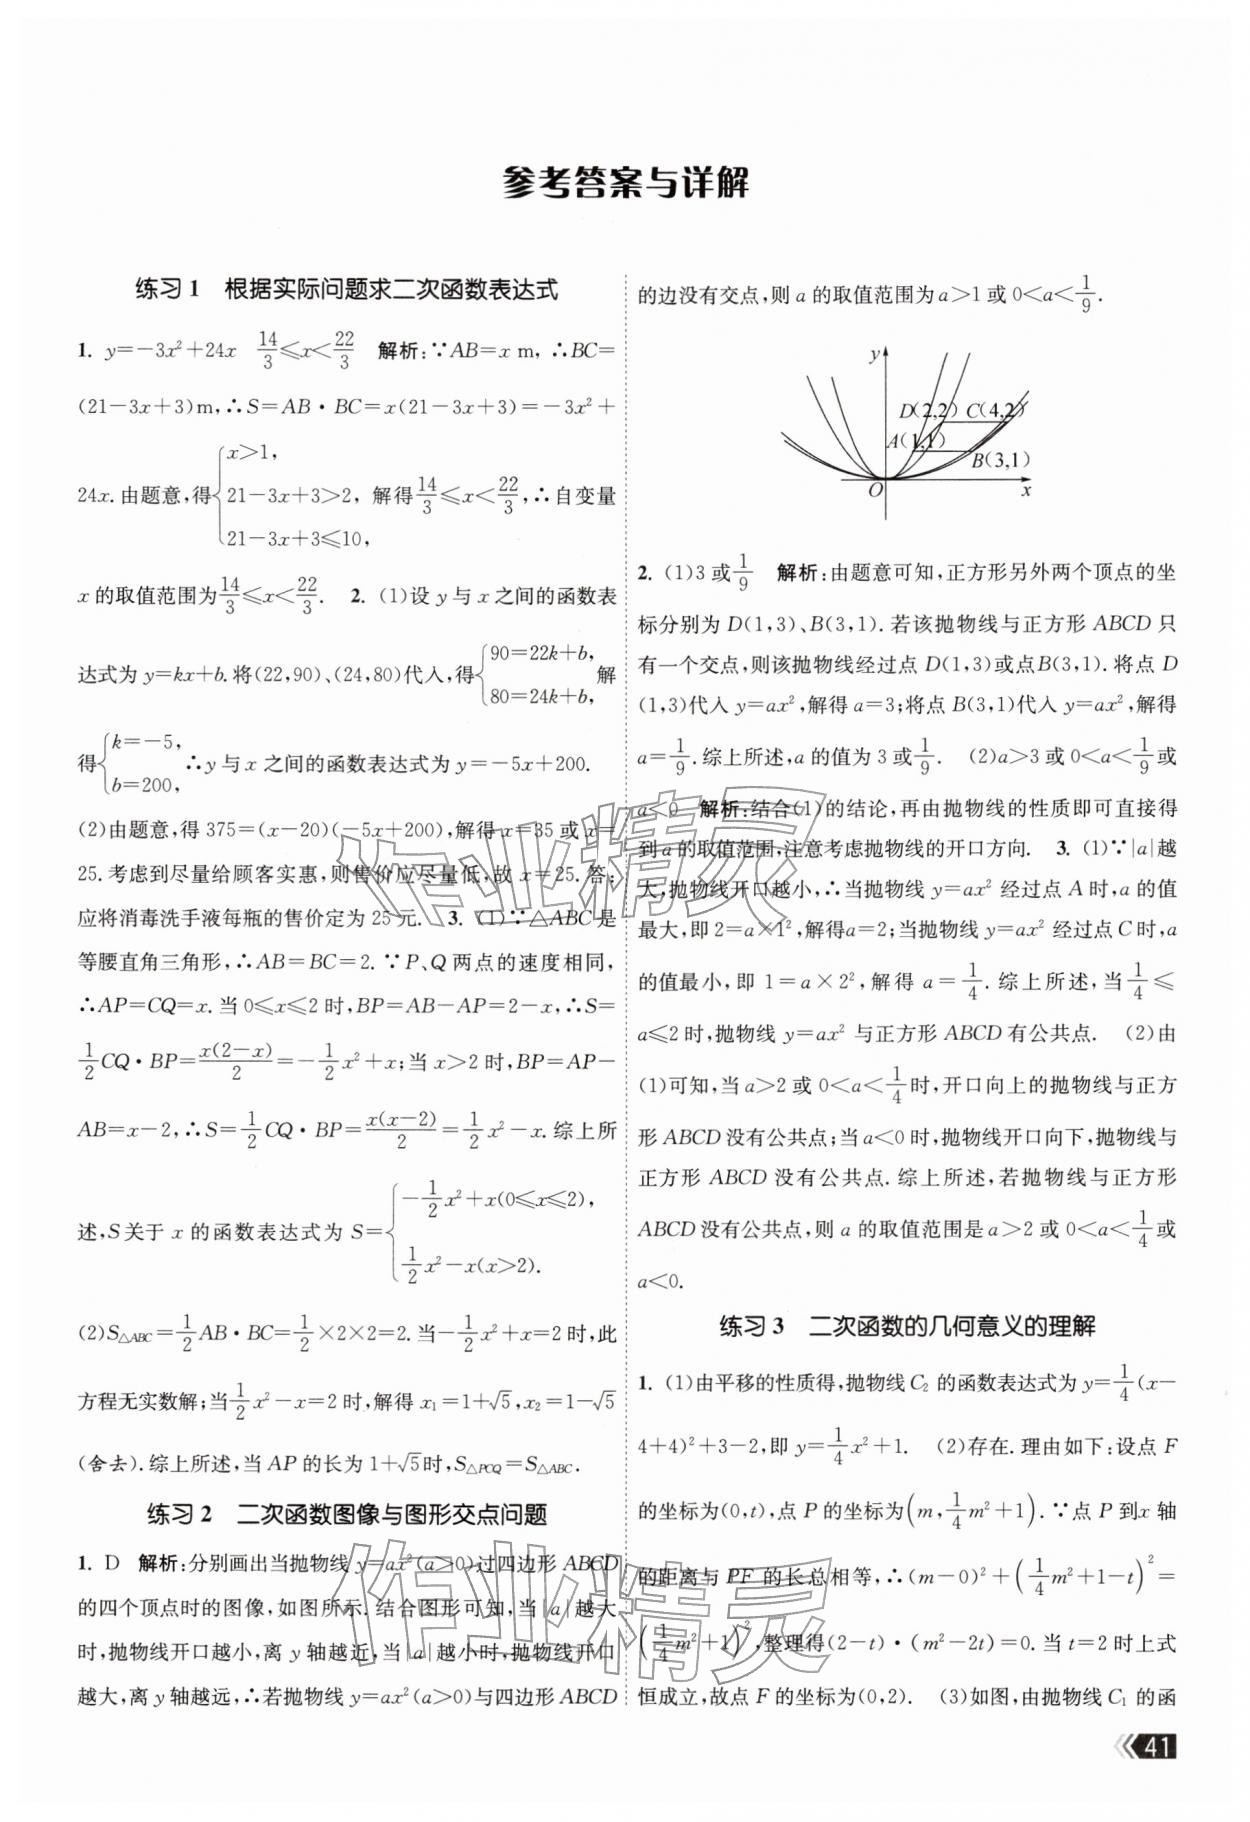 参考答案与详解
练习1 根据实际问题求二次函数表达式
1. y=-3x²+24x 14/3≤x<22/3 解析:∵AB=x m,∴BC=
(21-3x+3)m,∴S=AB·BC=x(21-3x+3)=-3x²+
24x.由题意,得{x>1, 21-3x+3>2, 21-3x+3≤10, 解得14/3≤x<22/3,∴自变量
x的取值范围为14/3≤x<22/3. 2. (1)设y与x之间的函数表
达式为y=kx+b.将(22,90)、(24,80)代入,得{90=22k+b, 80=24k+b, 解
得{k=-5, b=200, ∴y与x之间的函数表达式为y=-5x+200.
(2)由题意,得375=(x-20)(-5x+200),解得x=35或x=
25.考虑到尽量给顾客实惠,则售价应尽量低,故x=25.答:
应将消毒洗手液每瓶的售价定为25元. 3. (1)∵△ABC是
等腰直角三角形,∴AB=BC=2.∵P、Q两点的速度相同,
∴AP=CQ=x.当0≤x≤2时,BP=AB-AP=2-x,∴S=
1/2CQ·BP=x(2-x)/2=-1/2x²+x;当x>2时,BP=AP-
AB=x-2,∴S=1/2CQ·BP=x(x-2)/2=1/2x²-x.综上所
述,S关于x的函数表达式为S={-1/2x²+x(0≤x≤2), 1/2x²-x(x>2).
(2)S△ABC=1/2AB·BC=1/2×2×2=2.当-1/2x²+x=2时,此
方程无实数解;当1/2x²-x=2时,解得x₁=1+√5,x₂=1-√5
(舍去).综上所述,当AP的长为1+√5时,S△PCQ=S△ABC.
练习2 二次函数图像与图形交点问题
1. D 解析:分别画出当抛物线y=ax²(a>0)过四边形ABCD
的四个顶点时的图像,如图所示.结合图形可知,当|a|越大
时,抛物线开口越小,离y轴越近,当|a|越小时,抛物线开口
越大,离y轴越远,∴若抛物线y=ax²(a>0)与四边形ABCD
的边没有交点,则a的取值范围为a>1或0<a<1/9.
y
D(2,2) C(4,2)
A(1,1)
B(3,1)
O x
2. (1)3或1/9 解析:由题意可知,正方形另外两个顶点的坐
标分别为D(1,3)、B(3,1).若该抛物线与正方形ABCD只
有一个交点,则该抛物线经过点D(1,3)或点B(3,1).将点D
(1,3)代入y=ax²,解得a=3;将点B(3,1)代入y=ax²,解得
a=1/9.综上所述,a的值为3或1/9. (2)a>3或0<a<1/9或
a<0 解析:结合(1)的结论,再由抛物线的性质即可直接得
到a的取值范围,注意考虑抛物线的开口方向. 3. (1)∵|a|越
大,抛物线开口越小,∴当抛物线y=ax²经过点A时,a的值
最大,即2=a×1²,解得a=2;当抛物线y=ax²经过点C时,a
的值最小,即1=a×2²,解得a=1/4.综上所述,当1/4≤
a≤2时,抛物线y=ax²与正方形ABCD有公共点. (2)由
(1)可知,当a>2或0<a<1/4时,开口向上的抛物线与正方
形ABCD没有公共点;当a<0时,抛物线开口向下,抛物线与
正方形ABCD没有公共点.综上所述,若抛物线与正方形
ABCD没有公共点,则a的取值范围是a>2或0<a<1/4或
a<0.
练习3 二次函数的几何意义的理解
1. (1)由平移的性质得,抛物线C₂的函数表达式为y=1/4(x-
4+4)²+3-2,即y=1/4x²+1. (2)存在.理由如下:设点F
的坐标为(0,t),点P的坐标为(m,1/4m²+1).∵点P到x轴
的距离与PF的长总相等,∴(m-0)²+(1/4m²+1-t)²=
(1/4m²+1)²,整理得(2-t)·(m²-2t)=0.当t=2时上式
恒成立,故点F的坐标为(0,2). (3)如图,由抛物线C₁的函
41
作业精灵
作业精灵